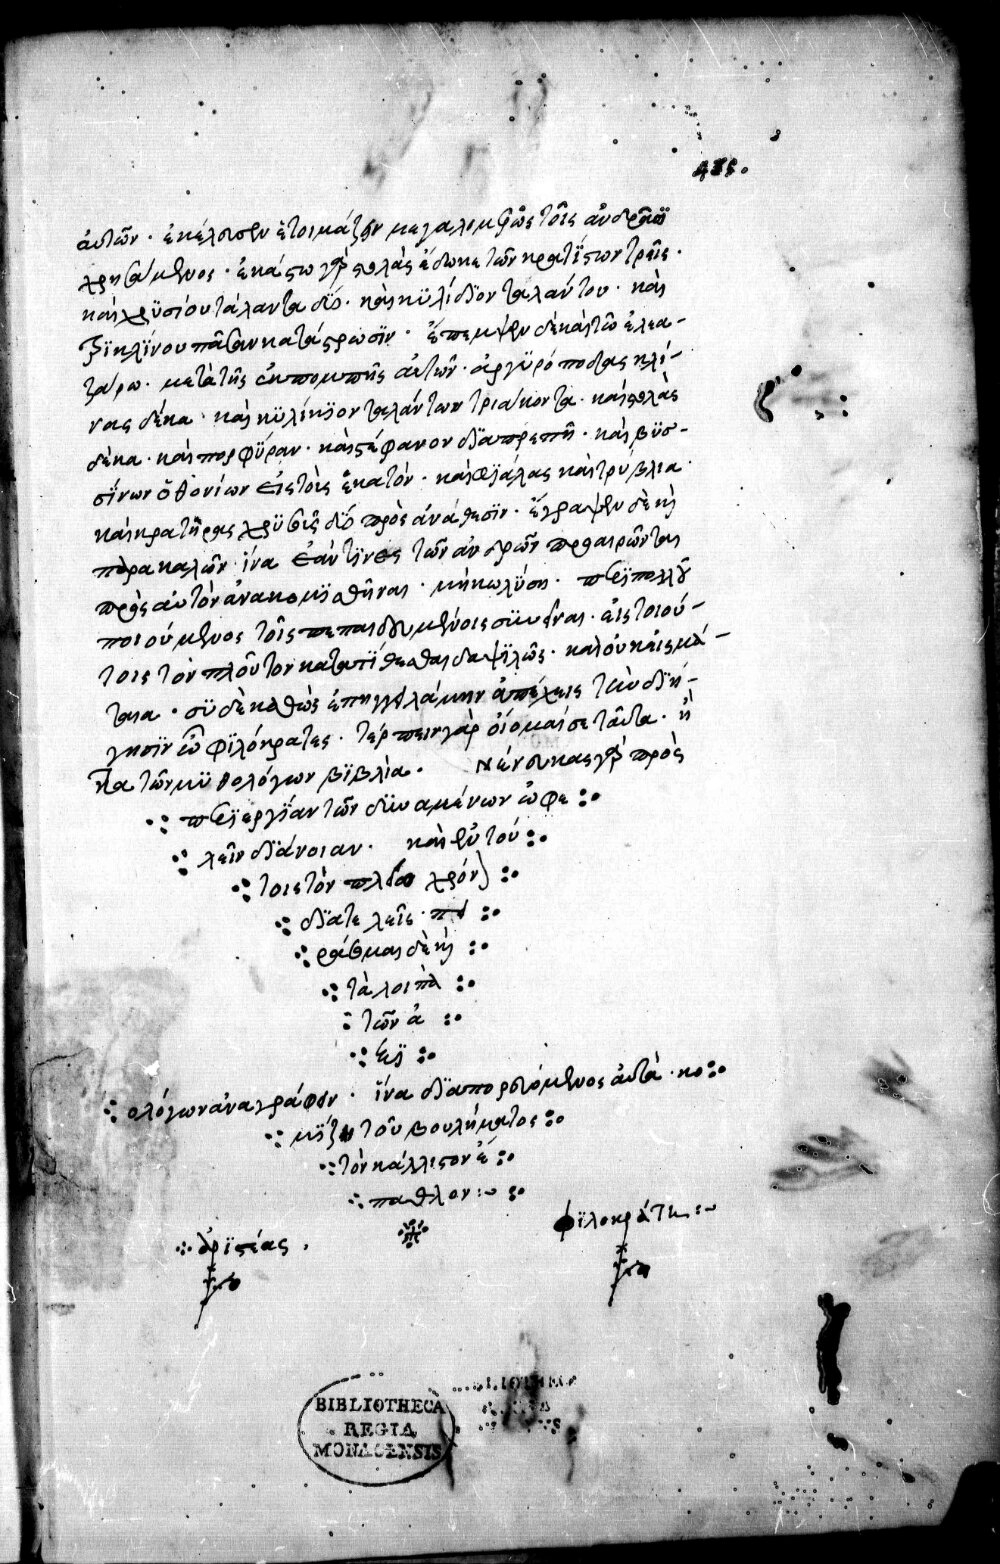 αὐτῶν · ἐκέλευσεν ἑτοιμάζειν μεγαλομερῶς τοῖς ἀνδράσι
χρησάμενος · ἑκάστω γὰρ στολὰς ἔδωκε τῶν κρατίστων τρεῖς ·
καὶ χρυσίου τάλαντα δύο · καὶ κυλίδιον ταλάντου · καὶ
τρικλίνου πᾶσαν κατάστρωσιν · ἔπεμψεν δὲ καὶ τῶ ἐλεα-
ζάρω · μετὰ τῆς ἐκπομπῆς αὐτῶν · ἀργυρόποδας κλί-
νας δέκα · καὶ κυλίκιον ταλάντων τριάκοντα · καὶ στολὰς
δέκα · καὶ πορφύραν · καὶ στέφανον διαπρεπῆ · καὶ βυσ-
σίνων ὀθονίων εἰς τοὺς ἑκατόν · καὶ φιάλας καὶ τρύβλια ·
καὶ κρατῆρας χρυσοῦς δύο πρὸς ἀνάθεσιν · ἔγραψεν δὲ καὶ
παρακαλῶν · ἵνα ἐάν τινες τῶν ἀνδρῶν προαιρῶνται
πρὸς αὐτὸν ἀνακομισθῆναι · μὴ κωλύση · περὶ πολλοῦ
ποιούμενος τοῖς πεπαιδευμένοις συνεῖναι · εἰς τοιού-
τοις τὸν πλοῦτον κατατίθεσθαι δαψιλῶς · καὶ οὐκ εἰς μά-
ταια · σὺ δὲ καθὼς ἐπηγγειλάμην ἀπέχεις τὴν διή-
γησιν ὦ φιλόκρατες · τέρπειν γὰρ οἴομαί σε ταῦτα · ἢ
τὰ τῶν μυθολόγων βιβλία · νένευκας γὰρ πρὸς
περιεργίαν τῶν δυναμένων ὠφε
λεῖν διάνοιαν · καὶ ἐν τού
τοις τὸν πλείονα χρόνον
διατελεῖς · πει
ράσομαι δὲ καὶ
τὰ λοιπὰ
τῶν ἀ
ξι
ολόγων ἀναγράφειν · ἵνα διαπορευόμενος αὐτὰ · κο
μίζη τοῦ βουλήματος
τὸν κάλλιστον ἔ
παθλον :~
ἀριστέας · φιλοκράτη :~
BIBLIOTHECA
REGIA
MONACENSIS